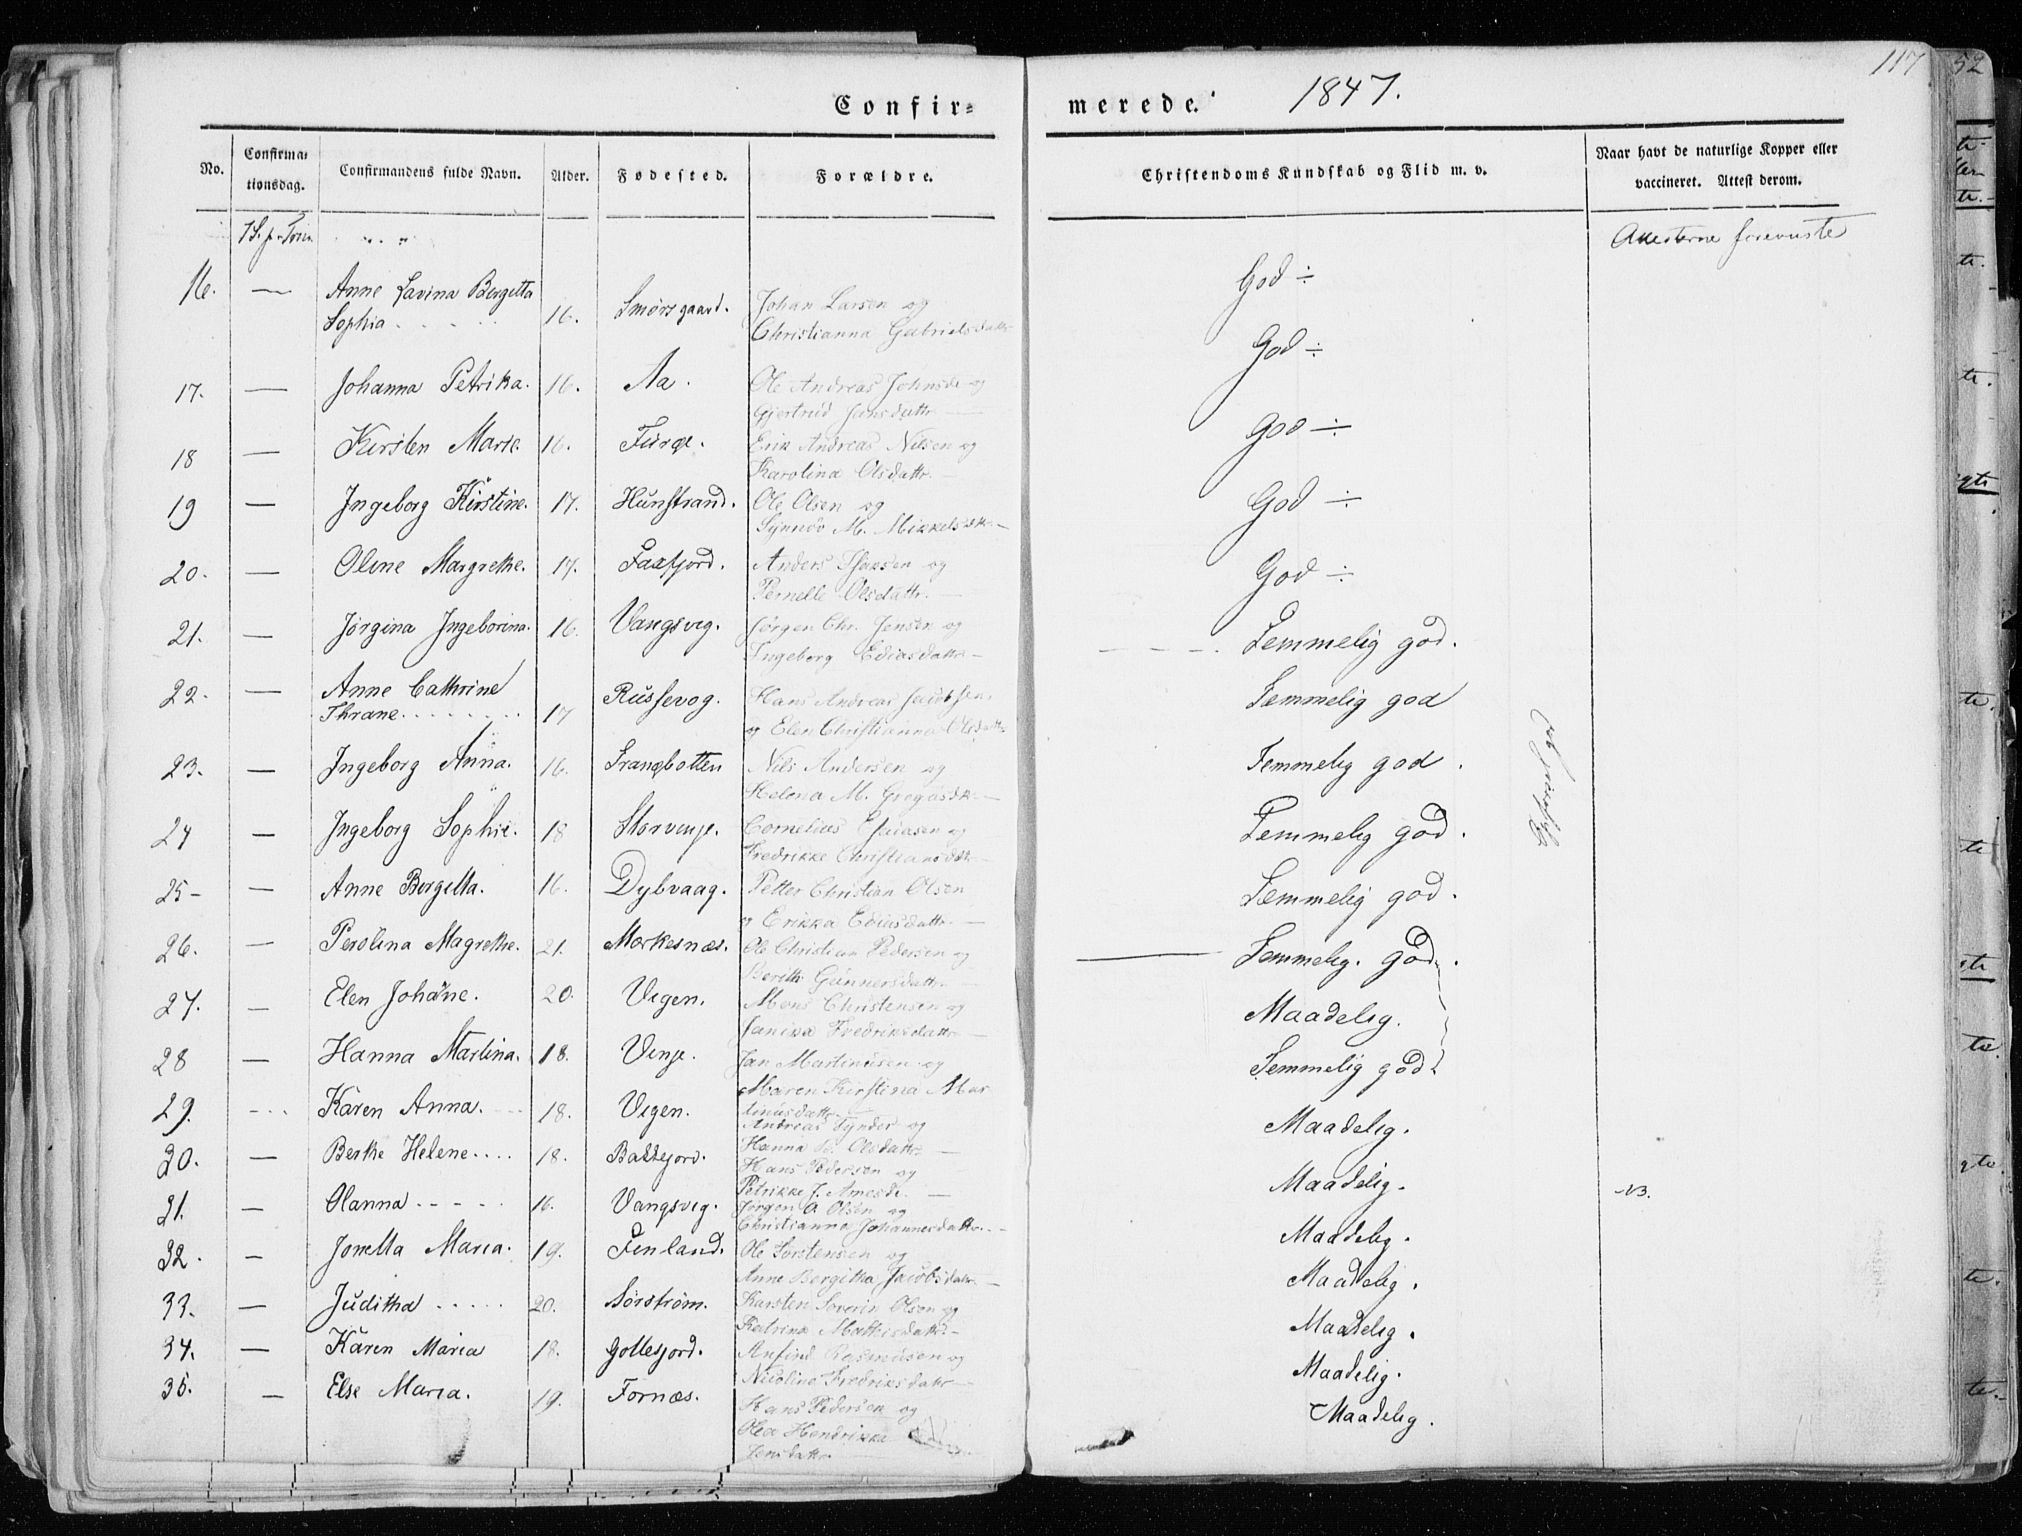 Confir-
merede. 1847. 117
No. Confirmationsdag. Confirmandens fulde Navn. Alder. Fødested. Forældre. Christendoms Kundskab og Flid m. v. Naar havt de naturlige Kopper eller vaccineret. Attest derom.
7 S. p. Trin. " " " Attesterne foreviiste
16. — Anne Lavina Bergitta
Sophia 16. Smørsgaard. Johan Larsen og
Christianna Gabrielsdattr God ÷
17. — Johanna Petrika. 16. Aa. Ole Andreas Johnsen og
Gjertrud Jensdattr. — God ÷
18 — Kirsten Marie. 16. Furøe. Erik Andreas Nilsen og
Karolina Olsdattr. — God ÷
19 — Ingeborg Kirstine. 17. Hunstrand. Ole Olsen og
Synnöv M. Mikkelsdtr. — God ÷
20. — Oline Margrethe. 17. Faxfjord. Anders Hansen og
Pernelle Olsdattr. — God ÷
21. — Jørgina Ingeborina. 16. Vangsvig. Jørgen Chr. Jensen og
Ingeborg Ediasdattr — Temmelig god.
22. — Anne Cathrine
Thrane 17 Russevog. Hans Andreas Jacobsen
og Elen Christianna Olsdattr Temmelig god
23. — Ingeborg Anna. 16. Trangbotten Nils Andersen og
Helena M. Gregusdtr. — Temmelig god.
24 — Ingeborg Sophie. 18 Storvinje. Cornelius Esaiasen og
Fredrikke Christiansdtr — Temmelig god.
25 — Anne Bergitta. 16. Dybvaag. Petter Christian Olsen
og Erikka Ediasdattr. — Temmelig god.
26. — Perolina Magrethe. 21. Morkesnæs. Ole Christian Pedersen og
Berith Gunnersdattr. Temmelig god.
27. — Elen Johane. 20. Vigen. Mons Christensen og
Janika Fredriksdattr — Maadelig.
28 — Hanna Martina. 18. Vinje. Jan Martinusen og
Maren Kirstina Mar
tinusdattr. Temmelig god.
29. Karen Anna. 18. Vigen. Andreas Tynder og
Hanna Olsdattr. — Maadelig.
30. — Berthe Helene 18. Baltsfjord. Hans Pedersen og
Petrikke J. — Maadelig.
31. — Olanna 16. Vangsvig. Jørgen O Olsen og
Christianna Johannesdattr. — Maadelig. NB.
32. — Jonetta Maria. 19. Finland. Ole Torstensen og
Anne Bergitha Jacobsdattr — Maadelig.
33. — Juditha 20. Sørstrøm. Karsten Severin Olsen og
Katrina Mathisdattr. — Maadelig.
34. — Karen Maria 18. Gottesjord. Anfind Rasmusen og
Nicolina Fredriksdattr — Maadelig.
35. — Else Maria. 19. Fornæs. Hans Pedersen og
Olea Hendrikka
Jensdattr Maadelig.